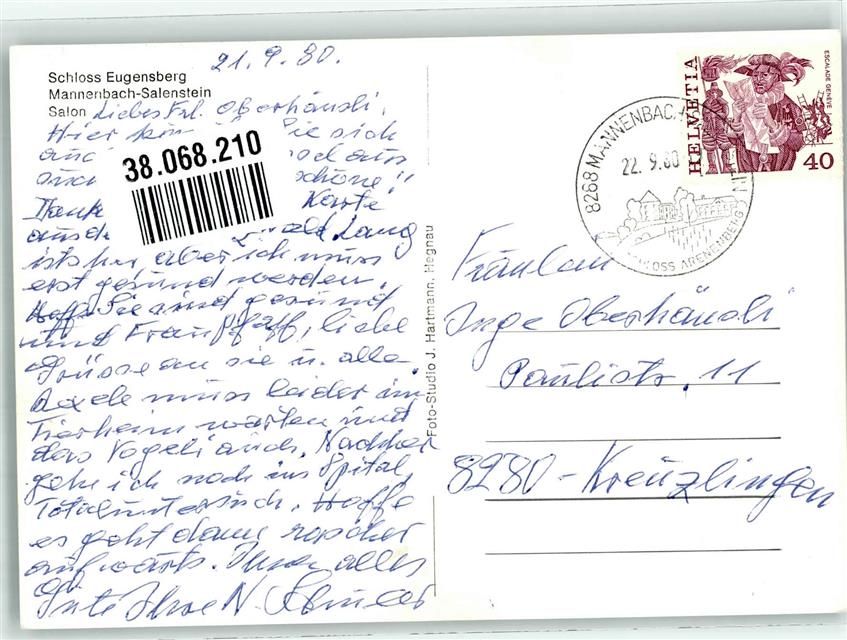 Schloss Eugensberg
Mannenbach-Salenstein
Salon
21.9.80.
Liebes Frl. Oberhänsli,
Hier Sie sich
aus
schöne!!
Danke Karte
lang
ists her aber ich muss
erst gesund werden.
Hoffe Sie sind gesund
und Frau Pfaff, liebe
Grüsse an sie u. alle.
muss leider im
Tierheim warten und
das Vogeli auch. Nachher
gehe ich noch ins Spital,
Totaluntersuch. Hoffe
es geht dann rascher
aufwärts. Ihnen alles
Gute Ihre N.
38.068.210
Foto-Studio J. Hartmann, Hegnau
8268 MANNENBACH
22.9.80
SCHLOSS ARENENBERG
HELVETIA
ESCALADE GENÈVE
40
Fräulein
Inge Oberhänsli
Paulistr. 11
8280 - Kreuzlingen